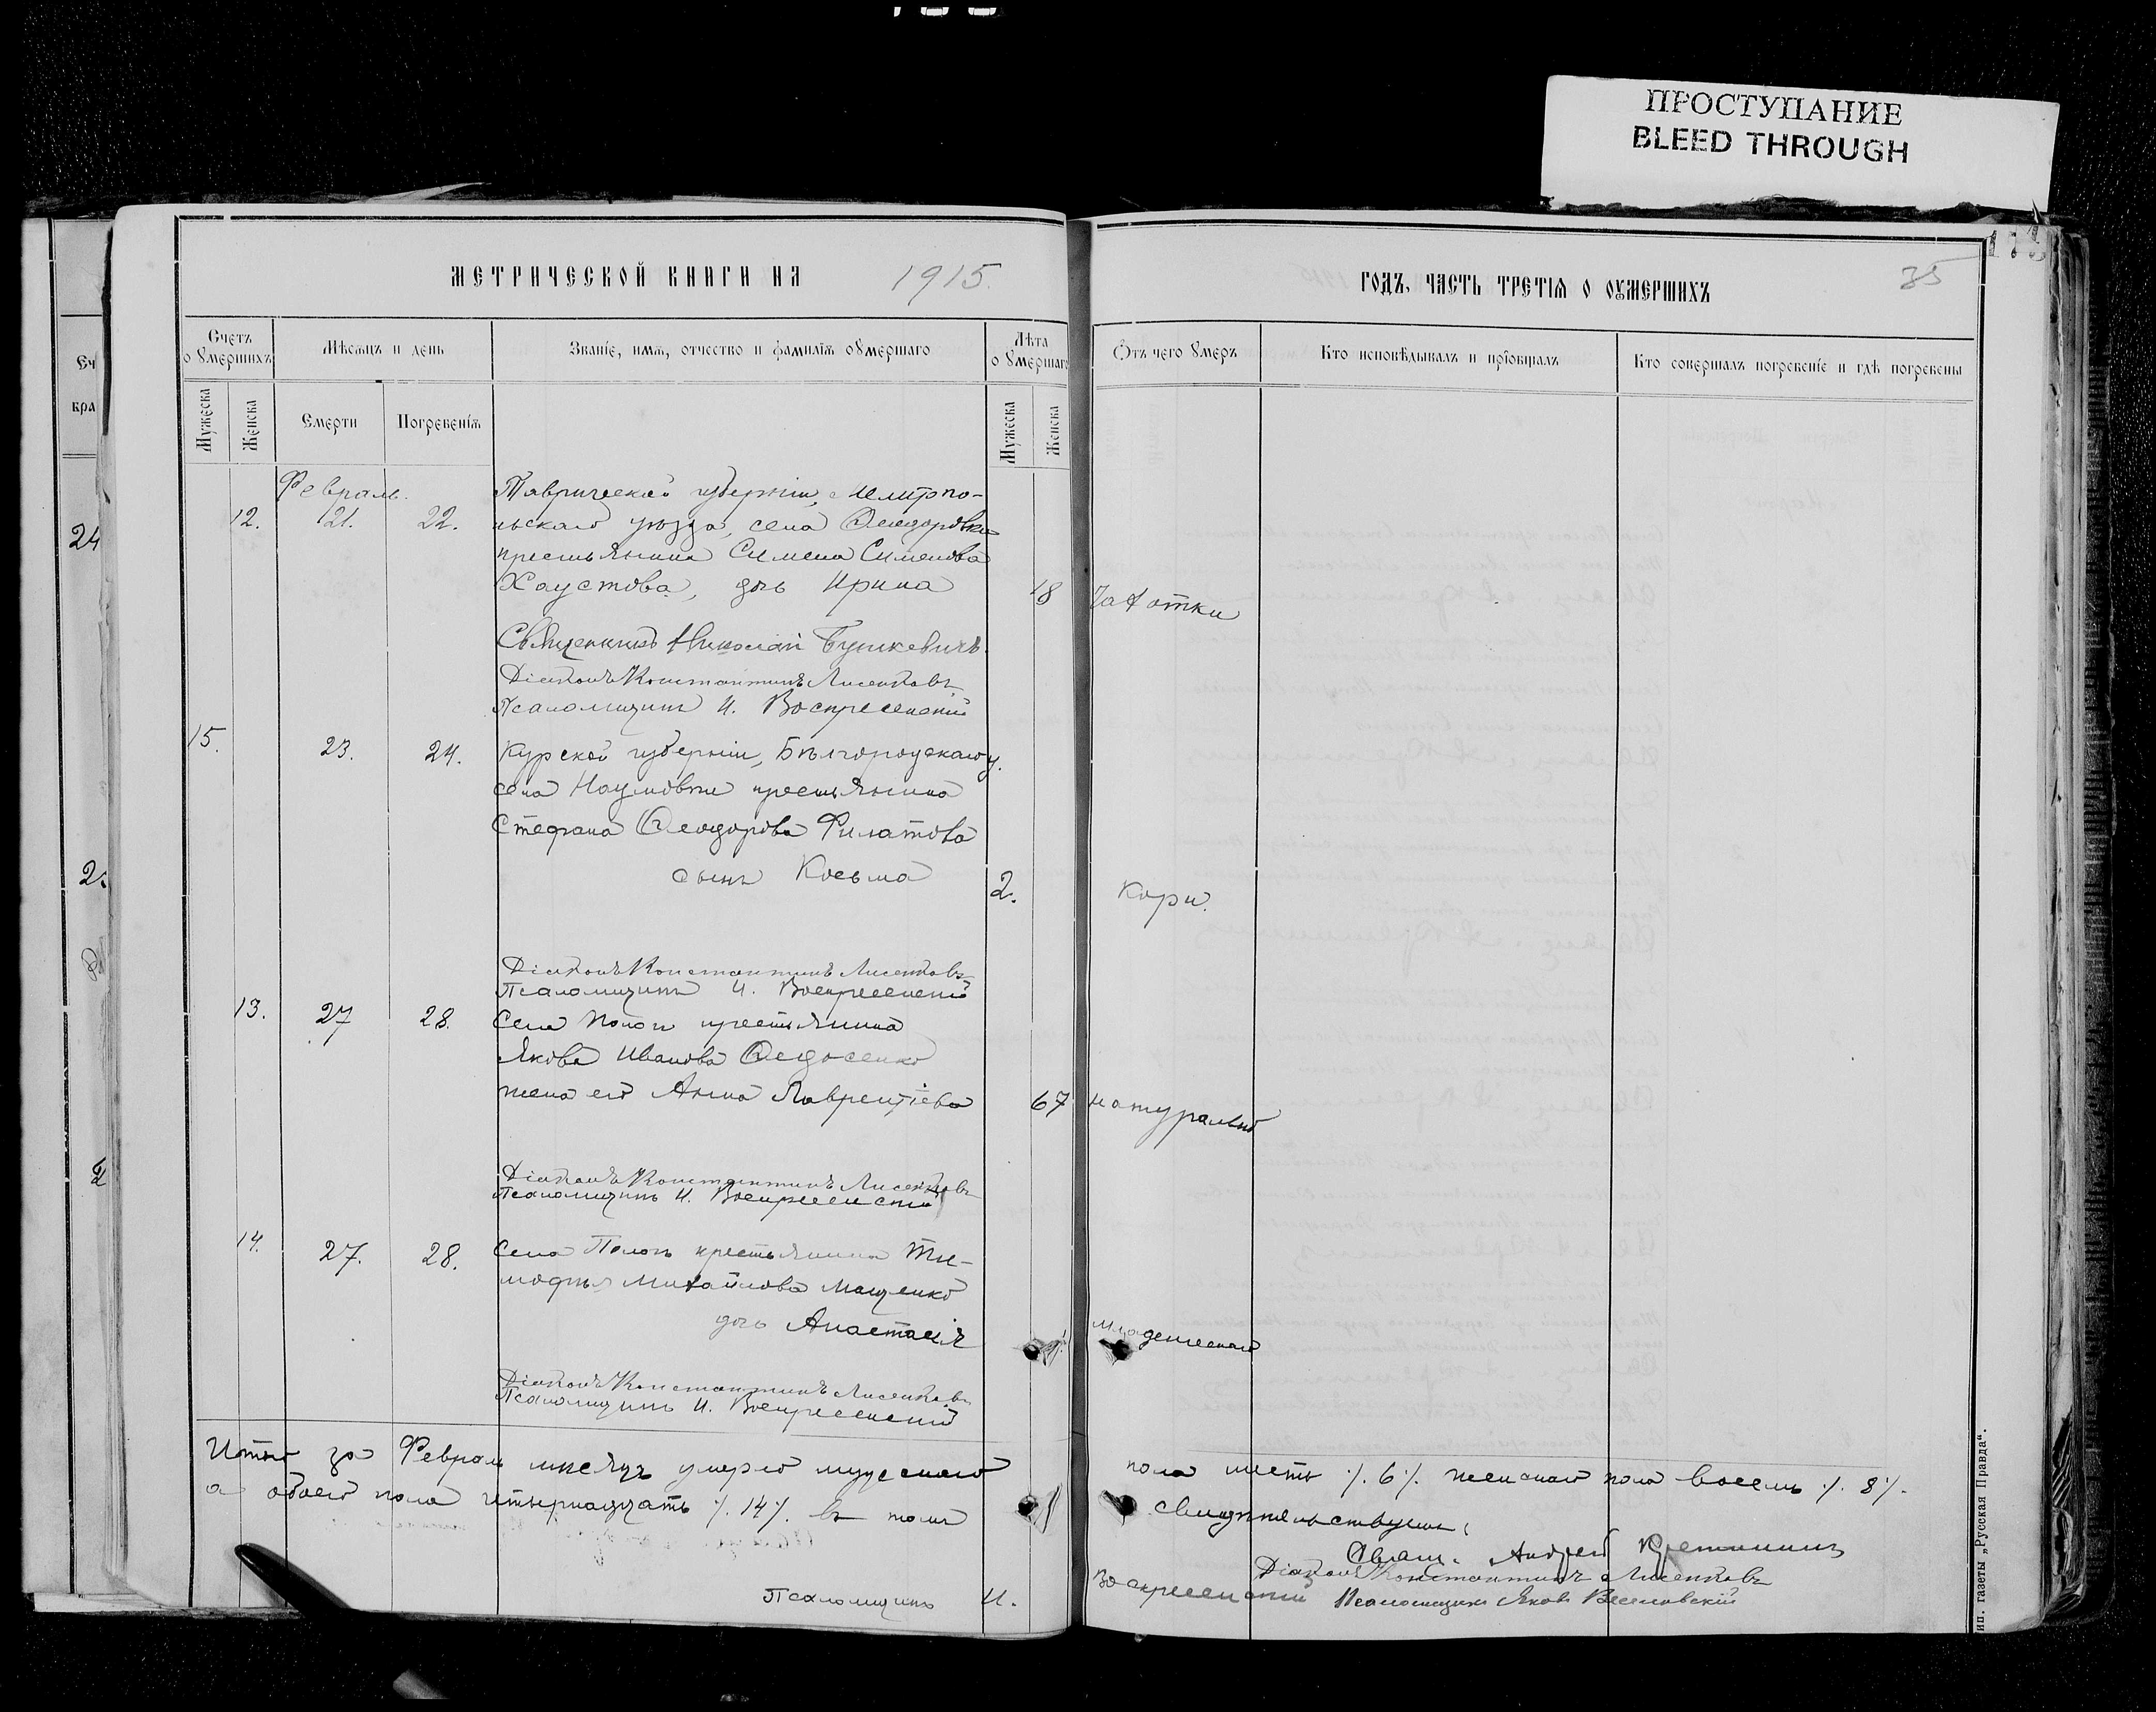 ПРОСТУПАНИЕ
BLEED THROUGH
МЕТРИЧЕСКОЙ КНИГИ НА 1915.
ГОДЪ, ЧАСТЬ ТРЕТІЯ О ОУМЕРШИХЪ
35
Счетъ о Ѹмершихъ
Мѣсяцъ и день
Званіе, имя, отчество и фамилія оумершаго
Лѣта оѸмершаго
Отъ чего Ѹмеръ
Кто исповѣдывалъ и пріобщалъ
Кто совершалъ погребеніе и гдѣ погребены
Мужеска
Женска
Смерти
Погребенія
Мужеска
Женска
Февраль.
Таврической губерніи, Мелитопо-
12. 21. 22. льскаго уѣзда, села Ѳеодоровки
крестьянина Симена Сименова
Хаустова, дочь Ирина 18 Чахотки
Священникъ Николай
Діаконъ Константинъ Лисенковъ
Псаломщикъ И. Воскресенскій
15. 23. 24. Курской губерніи, Бѣлгородскаго у.
села Наумовки крестьянина
Стефана Ѳеодорова Филатова
сынъ Косьма 2. Кори.
Діаконъ Константинъ Лисенковъ
Псаломщикъ И. Воскресенскій
13. 27 28. Села Пологъ крестьянина
Якова Иванова Ѳедосенко
жена его Анна Лаврентіева 67 натурально
Діаконъ Константинъ Лисенковъ
Псаломщикъ И. Воскресенскій
14. 27. 28. Села Пологъ крестьянина Ти-
мофѣя Михайлова Мащенко
дочь Анастасія младенческой
Діаконъ Константинъ Лисенковъ
Псаломщикъ И. Воскресенскій
Итого за Февраль мѣсяцъ умерло мужескаго пола шесть ./. 6 ./. женскаго пола восемь ./. 8 ./.
а обоего пола четырнадцать ./. 14 ./. въ томъ свидѣтельствуемъ:
Свящ. Андрей
Діаконъ Константинъ Лисенковъ
Псаломщикъ И. Воскресенскій Псаломщикъ Яковъ Веселовскій
газеты „Русская Правда“.
24
2.